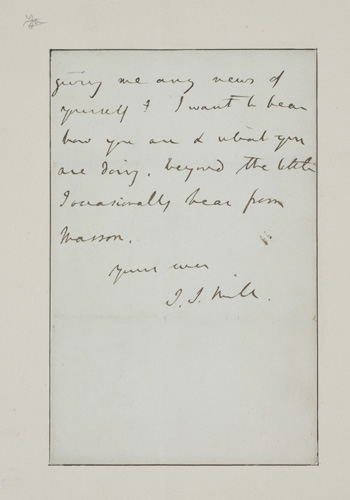 giving me any news of
yourself? I want to hear
how you are & what you
are doing, beyond the little
I occasionally hear from
Masson.
yours ever
J. S. Mill.